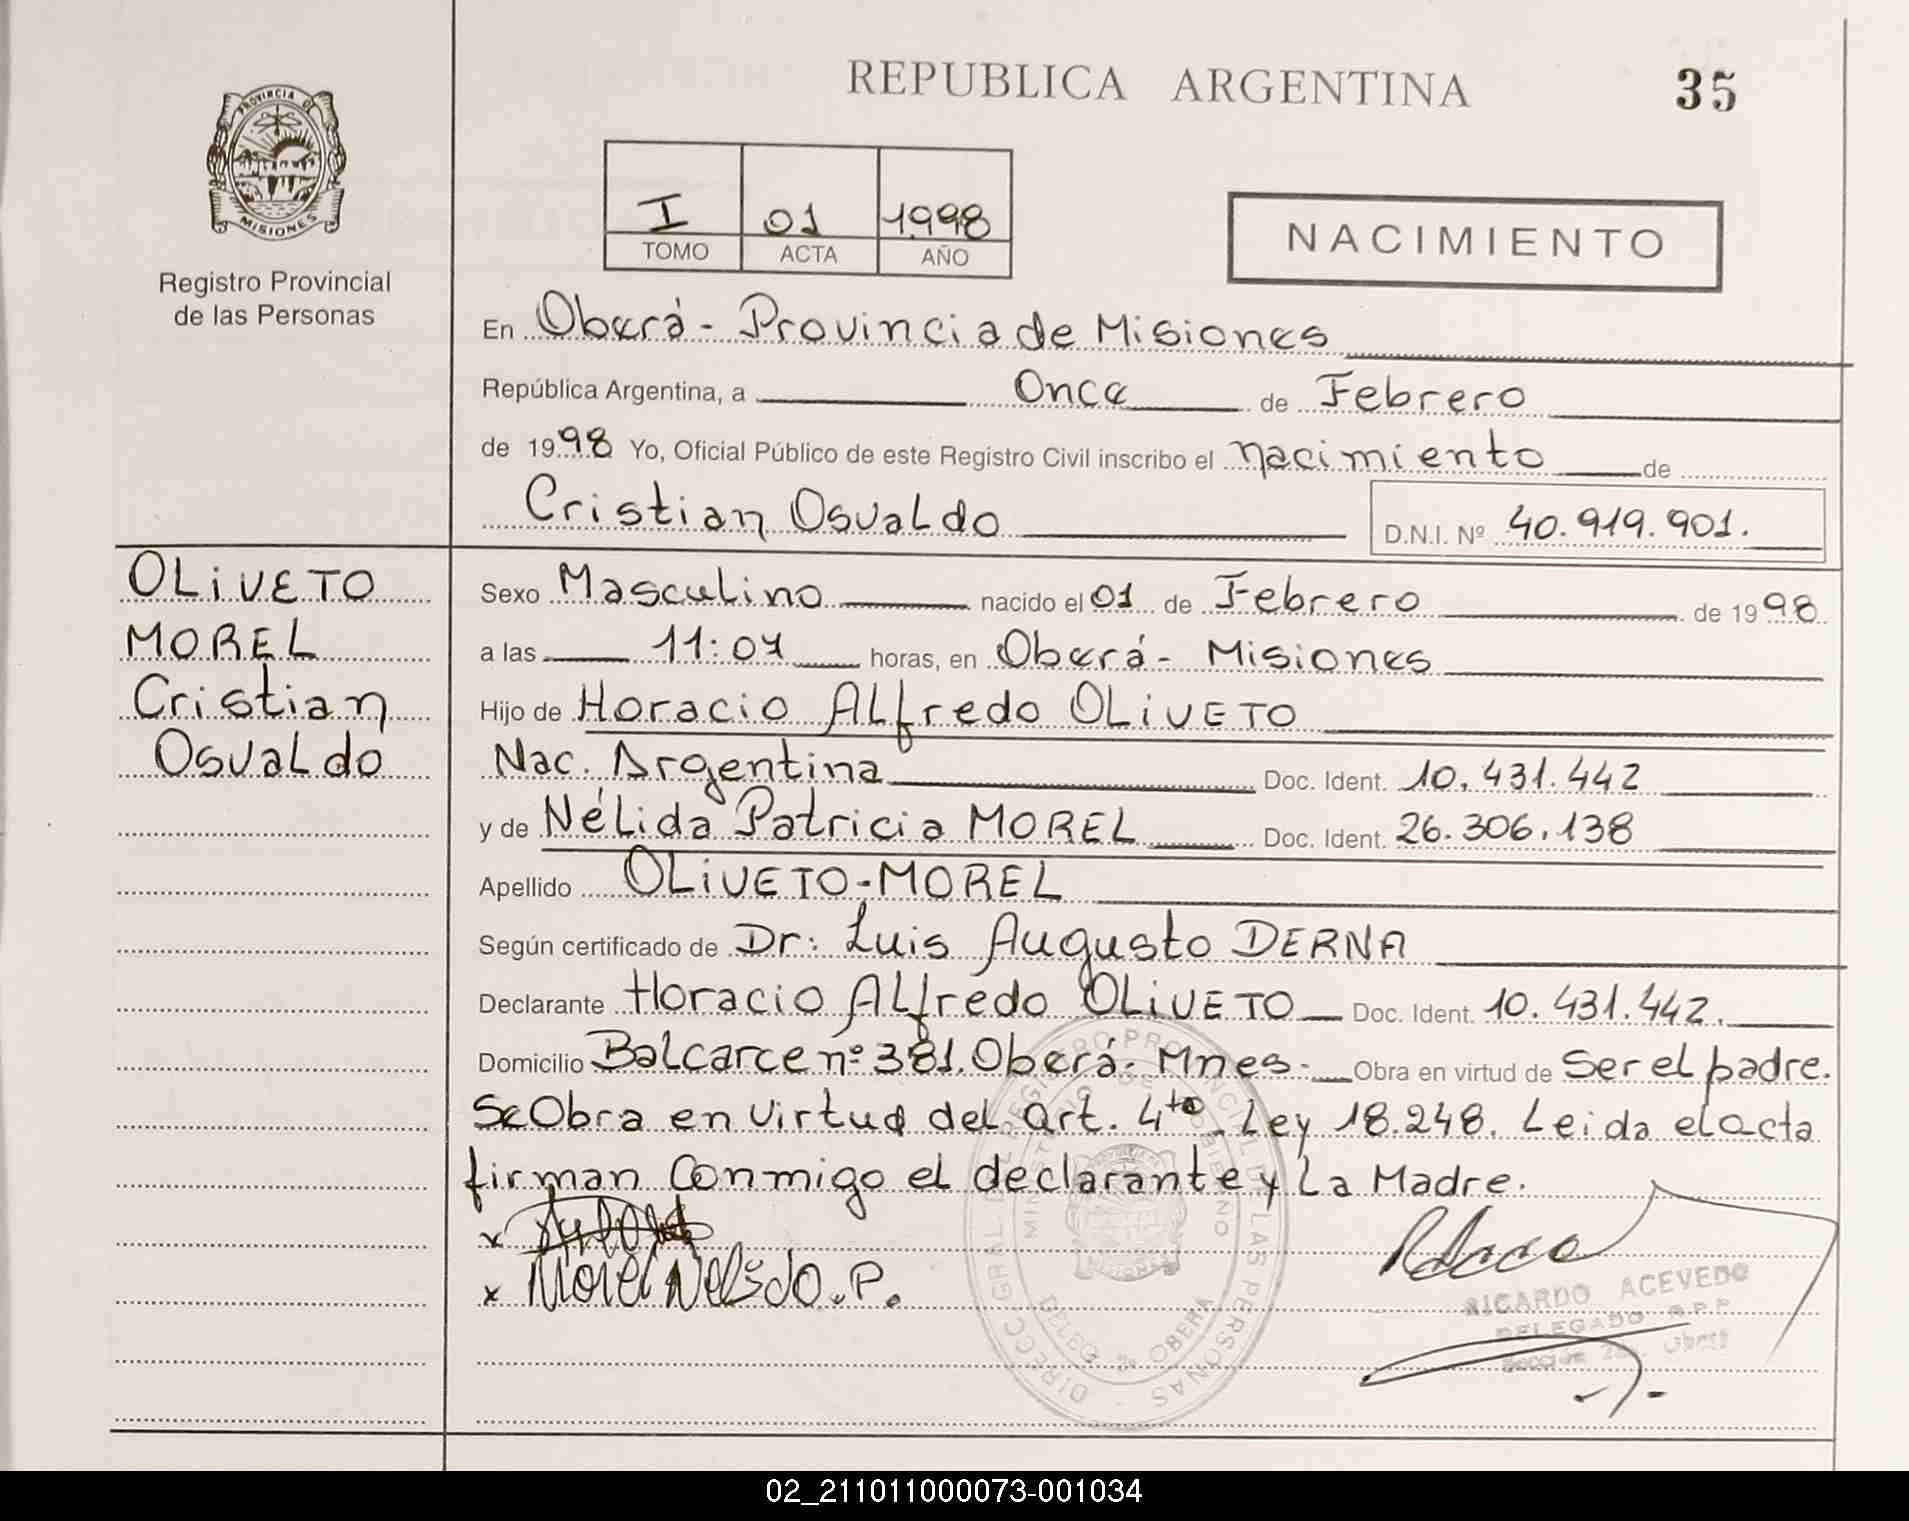 REPUBLICA ARGENTINA
35
PROVINCIA DE
MISIONES
Registro Provincial
de las Personas
I 01 1998
TOMO ACTA AÑO
NACIMIENTO
En Oberá - Provincia de Misiones
República Argentina, a Once de Febrero
de 1998 Yo, Oficial Público de este Registro Civil inscribo el nacimiento de
Cristian Osvaldo D.N.I. Nº 40.919.901.
OLiVETO
MOREL
Cristian
Osvaldo
Sexo Masculino nacido el 01 de Febrero de 1998
a las 11:07 horas, en Oberá - Misiones
Hijo de Horacio Alfredo OLiVETO
Nac. Argentina Doc. Ident. 10.431.442
y de Nélida Patricia MOREL Doc. Ident. 26.306.138
Apellido OLiVETO-MOREL
Según certificado de Dr: Luis Augusto DERNA
Declarante Horacio Alfredo OLiVETO Doc. Ident. 10.431.442.
Domicilio Balcarce nº 381. Oberá - Mnes. Obra en virtud de Ser el padre.
Se Obra en virtud del art. 4to Ley 18.248. Leida el acta
firman Conmigo el declarante y La Madre.
x
x Morel Nelido. P.
DIREC. GRAL. DEL REGISTRO PROVINCIAL DE LAS PERSONAS
MINISTERIO DE GOBIERNO
DELEG. 2a OBERA
RICARDO ACEVEDO
DELEGADO R.P.P.
Sección 2a. Oberá
02_211011000073-001034